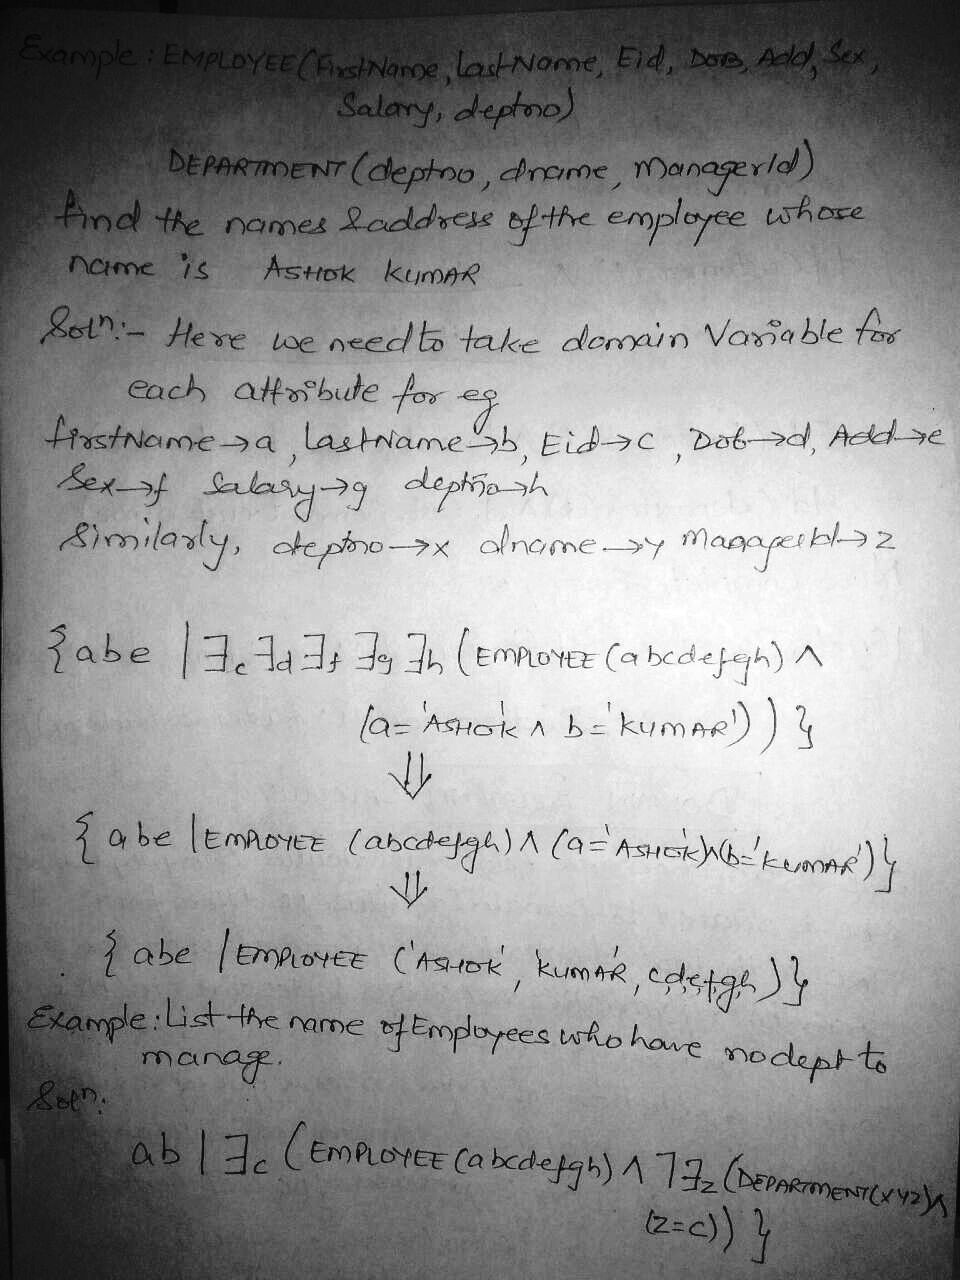 Example : EMPLOYEE (FirstName, LastName, Eid, DOB, Add, Sex,
Salary, deptno)
DEPARTMENT (deptno, dname, ManagerId)
find the names & address of the employee whose
name is ASHOK KUMAR
Solⁿ:- Here we need to take domain Variable for
each attribute for eg
firstName→a, LastName→b, Eid→c, Dob→d, Add→e
Sex→f Salary→g deptno→h
Similarly, deptno→x dname→y ManagerId→z
{abe | ∃c ∃d ∃f ∃g ∃h (EMPLOYEE (abcdefgh) ∧
(a='ASHOK' ∧ b='KUMAR')) }
⇓
{ abe | EMPLOYEE (abcdefgh) ∧ (a='ASHOK')∧(b='KUMAR')}
⇓
{ abe | EMPLOYEE ('ASHOK', 'KUMAR', c,d,e,f,g,h )}
Example: List the name of Employees who have no dept to
manage.
Solⁿ:
ab | ∃c (EMPLOYEE (abcdefgh) ∧ ¬∃z (DEPARTMENT(xyz)∧
(z=c)) }